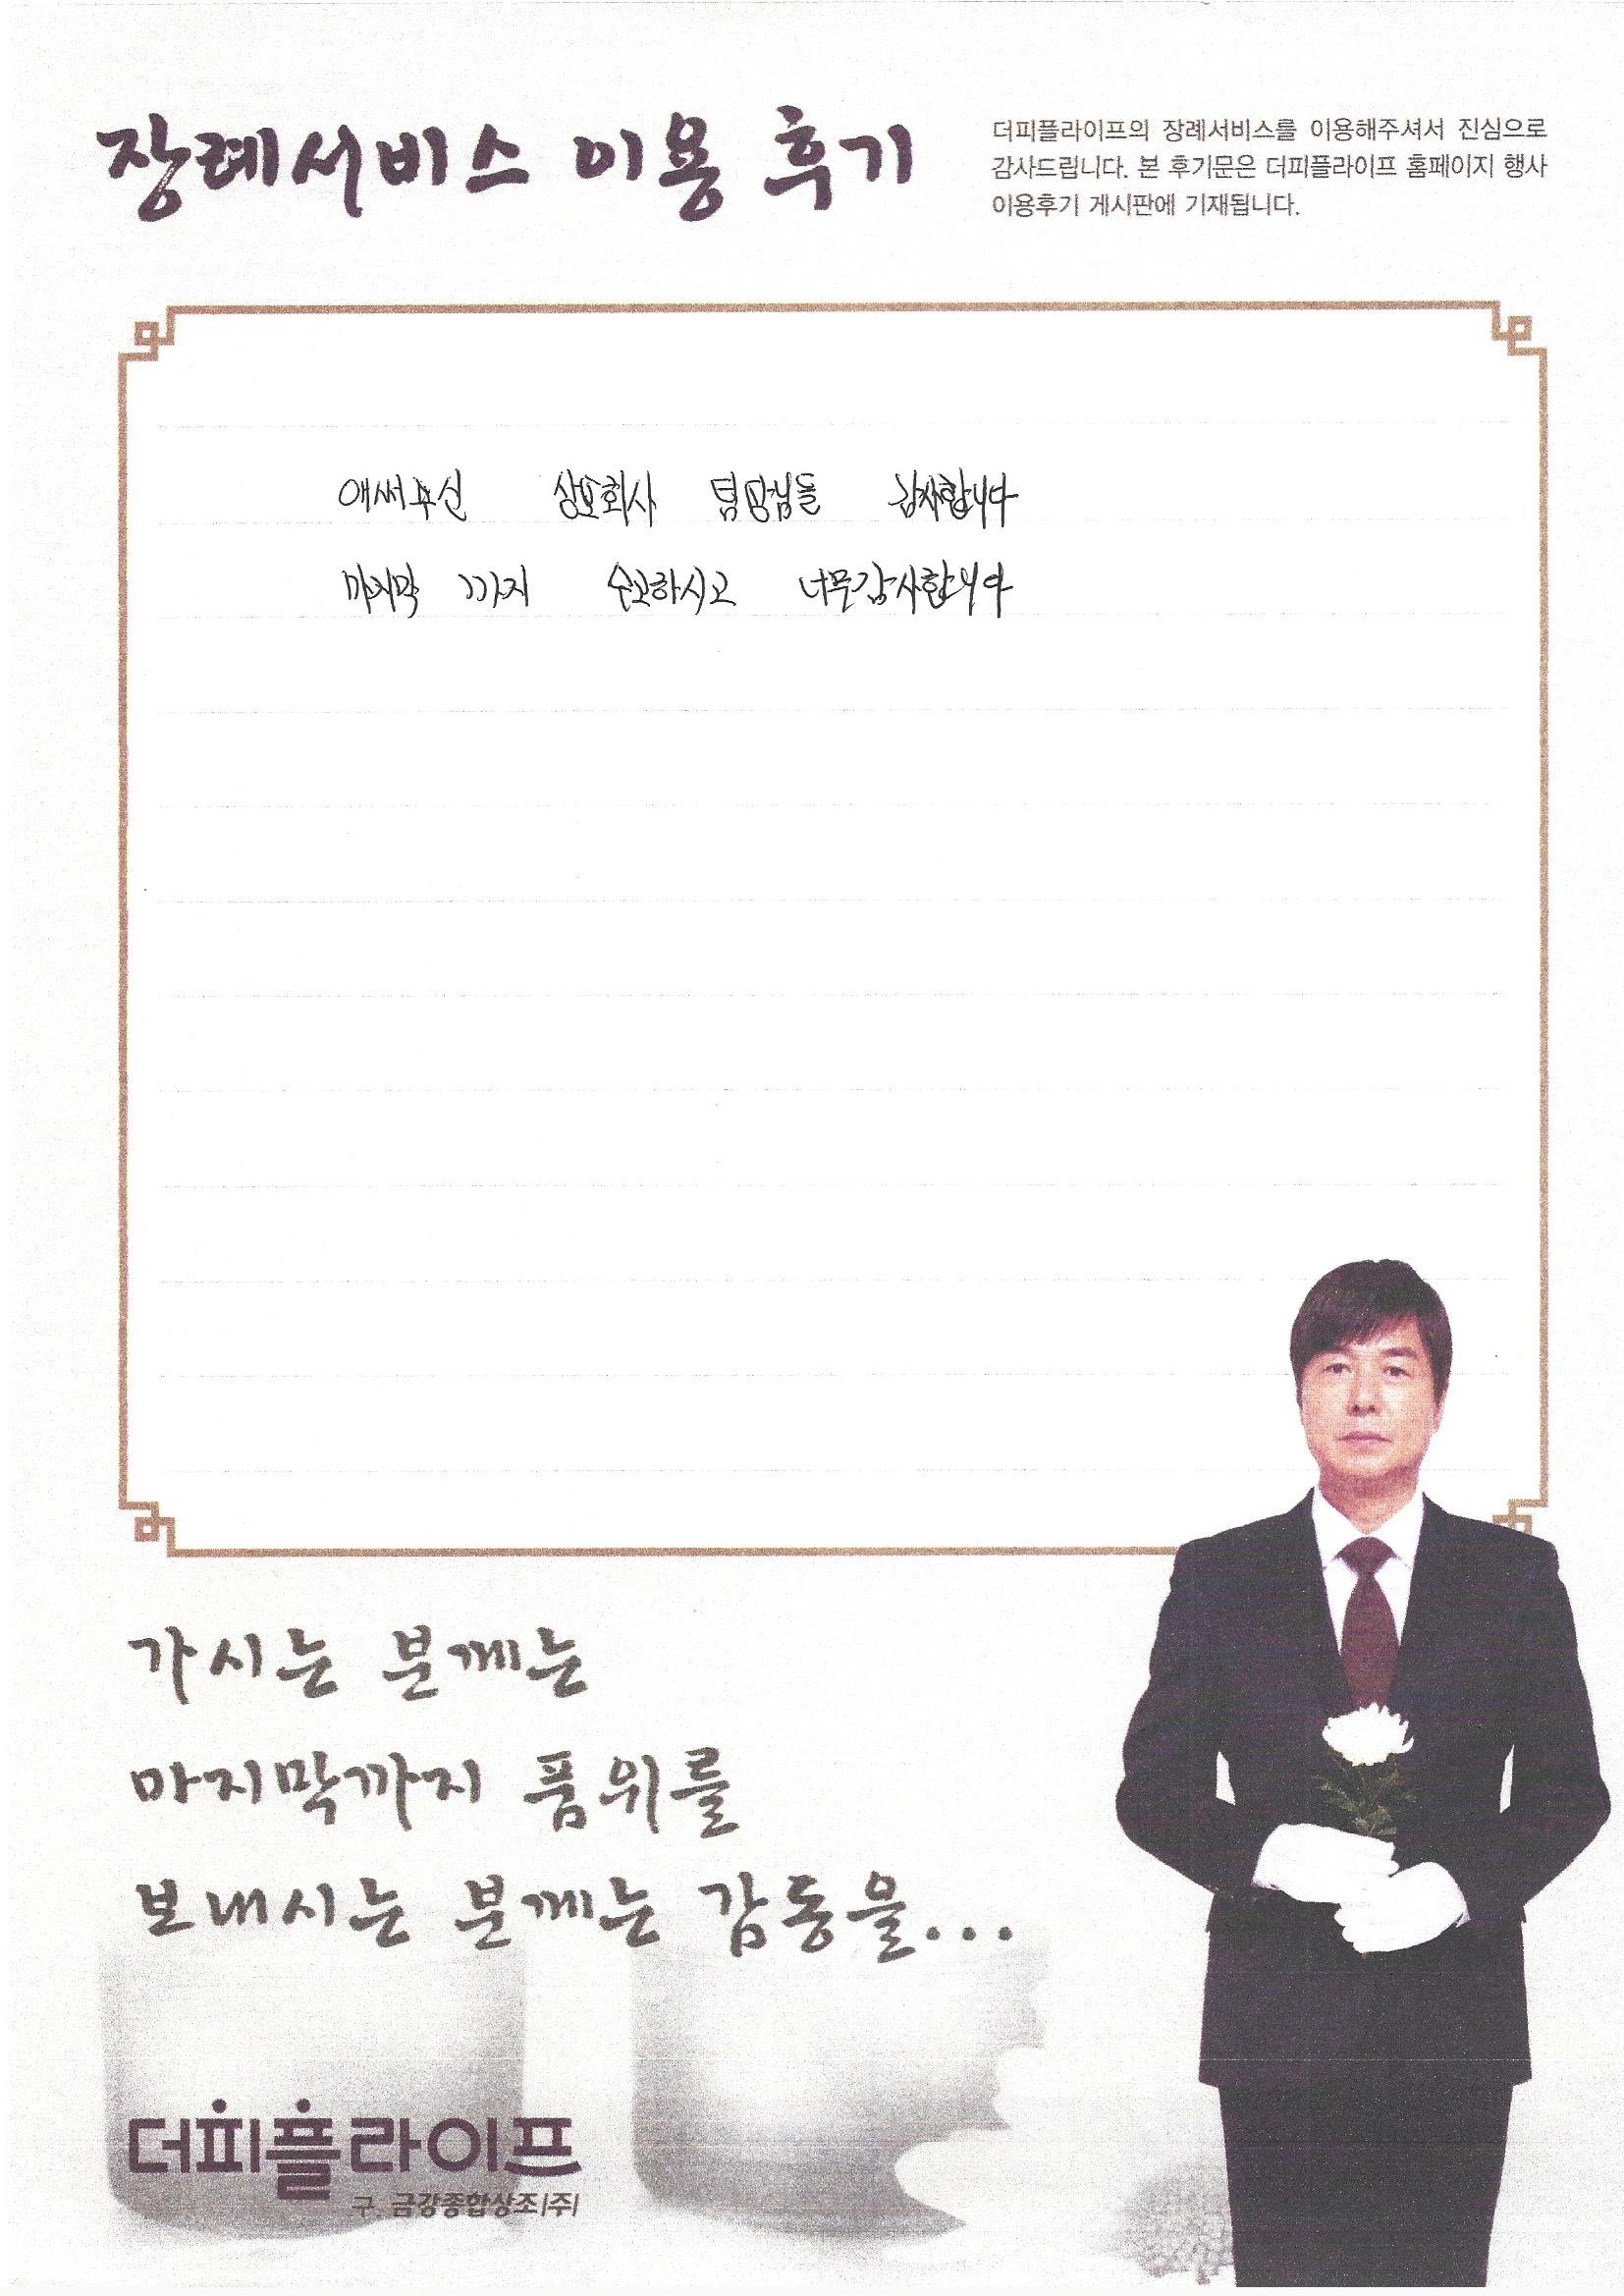 장례서비스 이용 후기
더피플라이프의 장례서비스를 이용해주셔서 진심으로
감사드립니다. 본 후기문은 더피플라이프 홈페이지 행사
이용후기 게시판에 기재됩니다.
애써주신 상조회사 팀장님들 감사합니다
마지막 까지 수고하시고 너무감사합니다
가시는 분께는
마지막까지 품위를
보내시는 분께는 감동을...
더피플라이프
구. 금강종합상조(주)